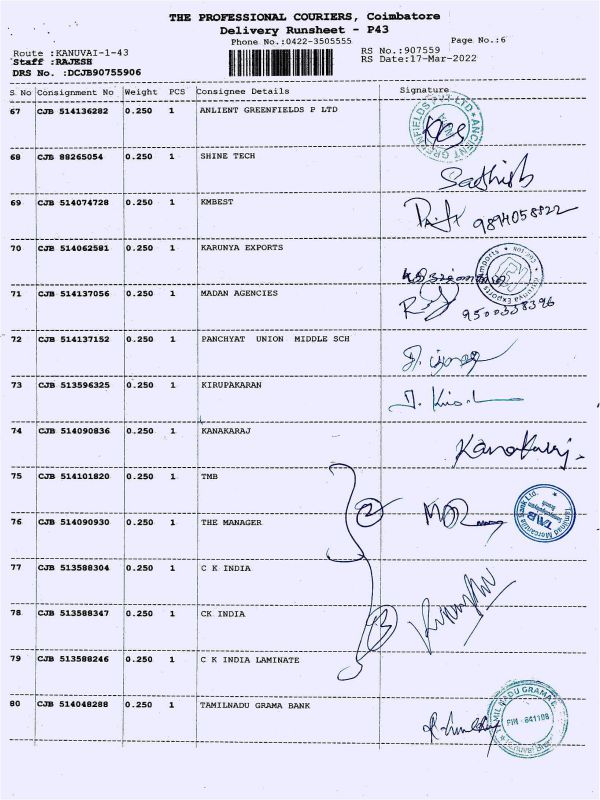 THE PROFESSIONAL COURIERS, Coimbatore
Delivery Runsheet - P43
Phone No.:0422-3505555
Page No.:6
Route :KANUVAI-1-43
RS No.:907559
Staff :RAJESH
RS Date:17-Mar-2022
DRS No. :DCJB90755906
S No Consignment No Weight PCS Consignee Details Signature
67 CJB 514136282 0.250 1 ANLIENT GREENFIELDS P LTD
68 CJB 88265054 0.250 1 SHINE TECH
Sathish
69 CJB 514074728 0.250 1 KMBEST
9894058822
70 CJB 514062581 0.250 1 KARUNYA EXPORTS
71 CJB 514137056 0.250 1 MADAN AGENCIES
9500338396
72 CJB 514137152 0.250 1 PANCHYAT UNION MIDDLE SCH
73 CJB 513596325 0.250 1 KIRUPAKARAN
74 CJB 514090836 0.250 1 KANAKARAJ
Kanakaraj.
75 CJB 514101820 0.250 1 TMB
2
76 CJB 514090930 0.250 1 THE MANAGER
77 CJB 513588304 0.250 1 C K INDIA
78 CJB 513588347 0.250 1 CK INDIA
3
79 CJB 513588246 0.250 1 C K INDIA LAMINATE
80 CJB 514048288 0.250 1 TAMILNADU GRAMA BANK
TAMIL NADU GRAMA
PIN - 641108